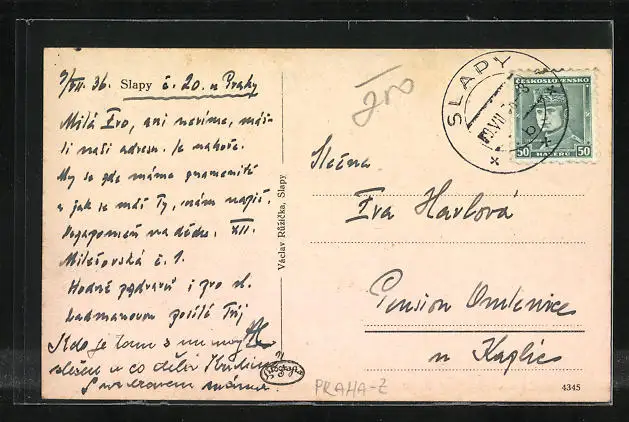 9/VII. 36. Slapy č. 20. u Prahy
Milá Evo, ani nevíme, máš-
li naši adresu. Je nahoře.
My se zde máme znamenitě
a jak se máš Ty, nám napiš.
Nezapomeň na dědu. XII.
Milešovská č. 1.
Hodně pozdravů i pro
posílá Tvůj
Kdo je tam s
a co dělá
S pozdravem máma.
Václav Růžička, Slapy
SLAPY
ČESKOSLOVENSKO
50 HALÉŘŮ 50
Slečna
Eva Havlová
Pension Omlenice
u Kaplic
PRAHA-Z
4345